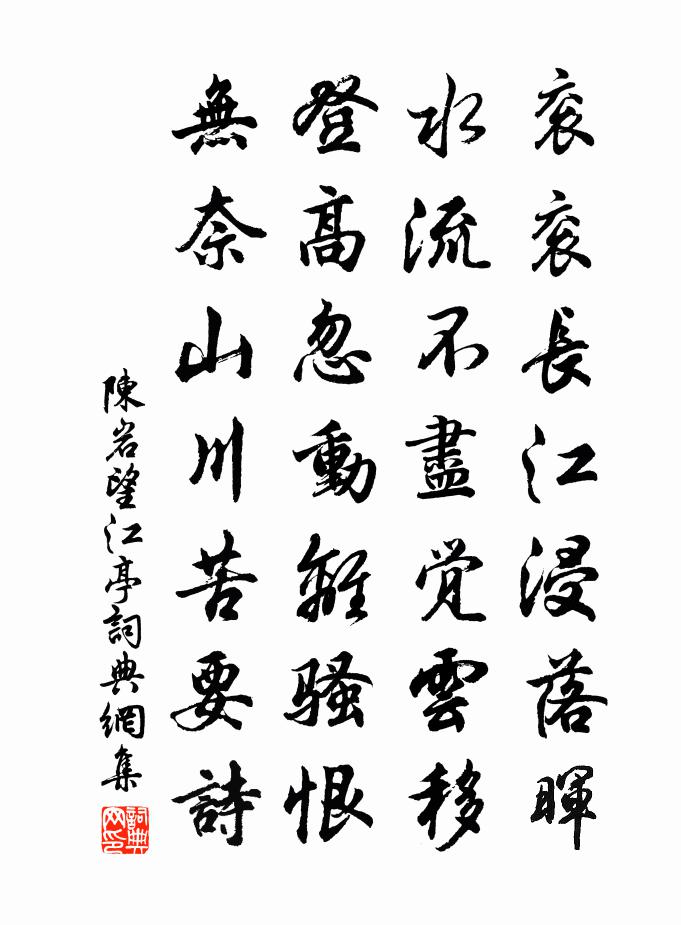 衮衮長江浸落暉
水流不盡覚雲移
登高忽動離騷恨
無奈山川苦要詩
陳岩望江亭詞典網集
詞典网印